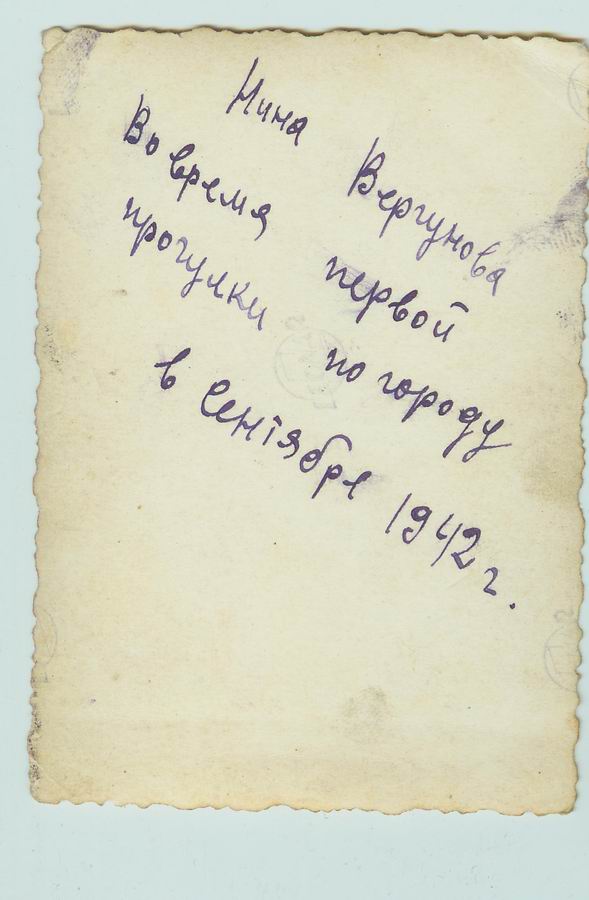 Нина Вергунова
Во время первой
прогулки по городу
в сентябре 1942 г.